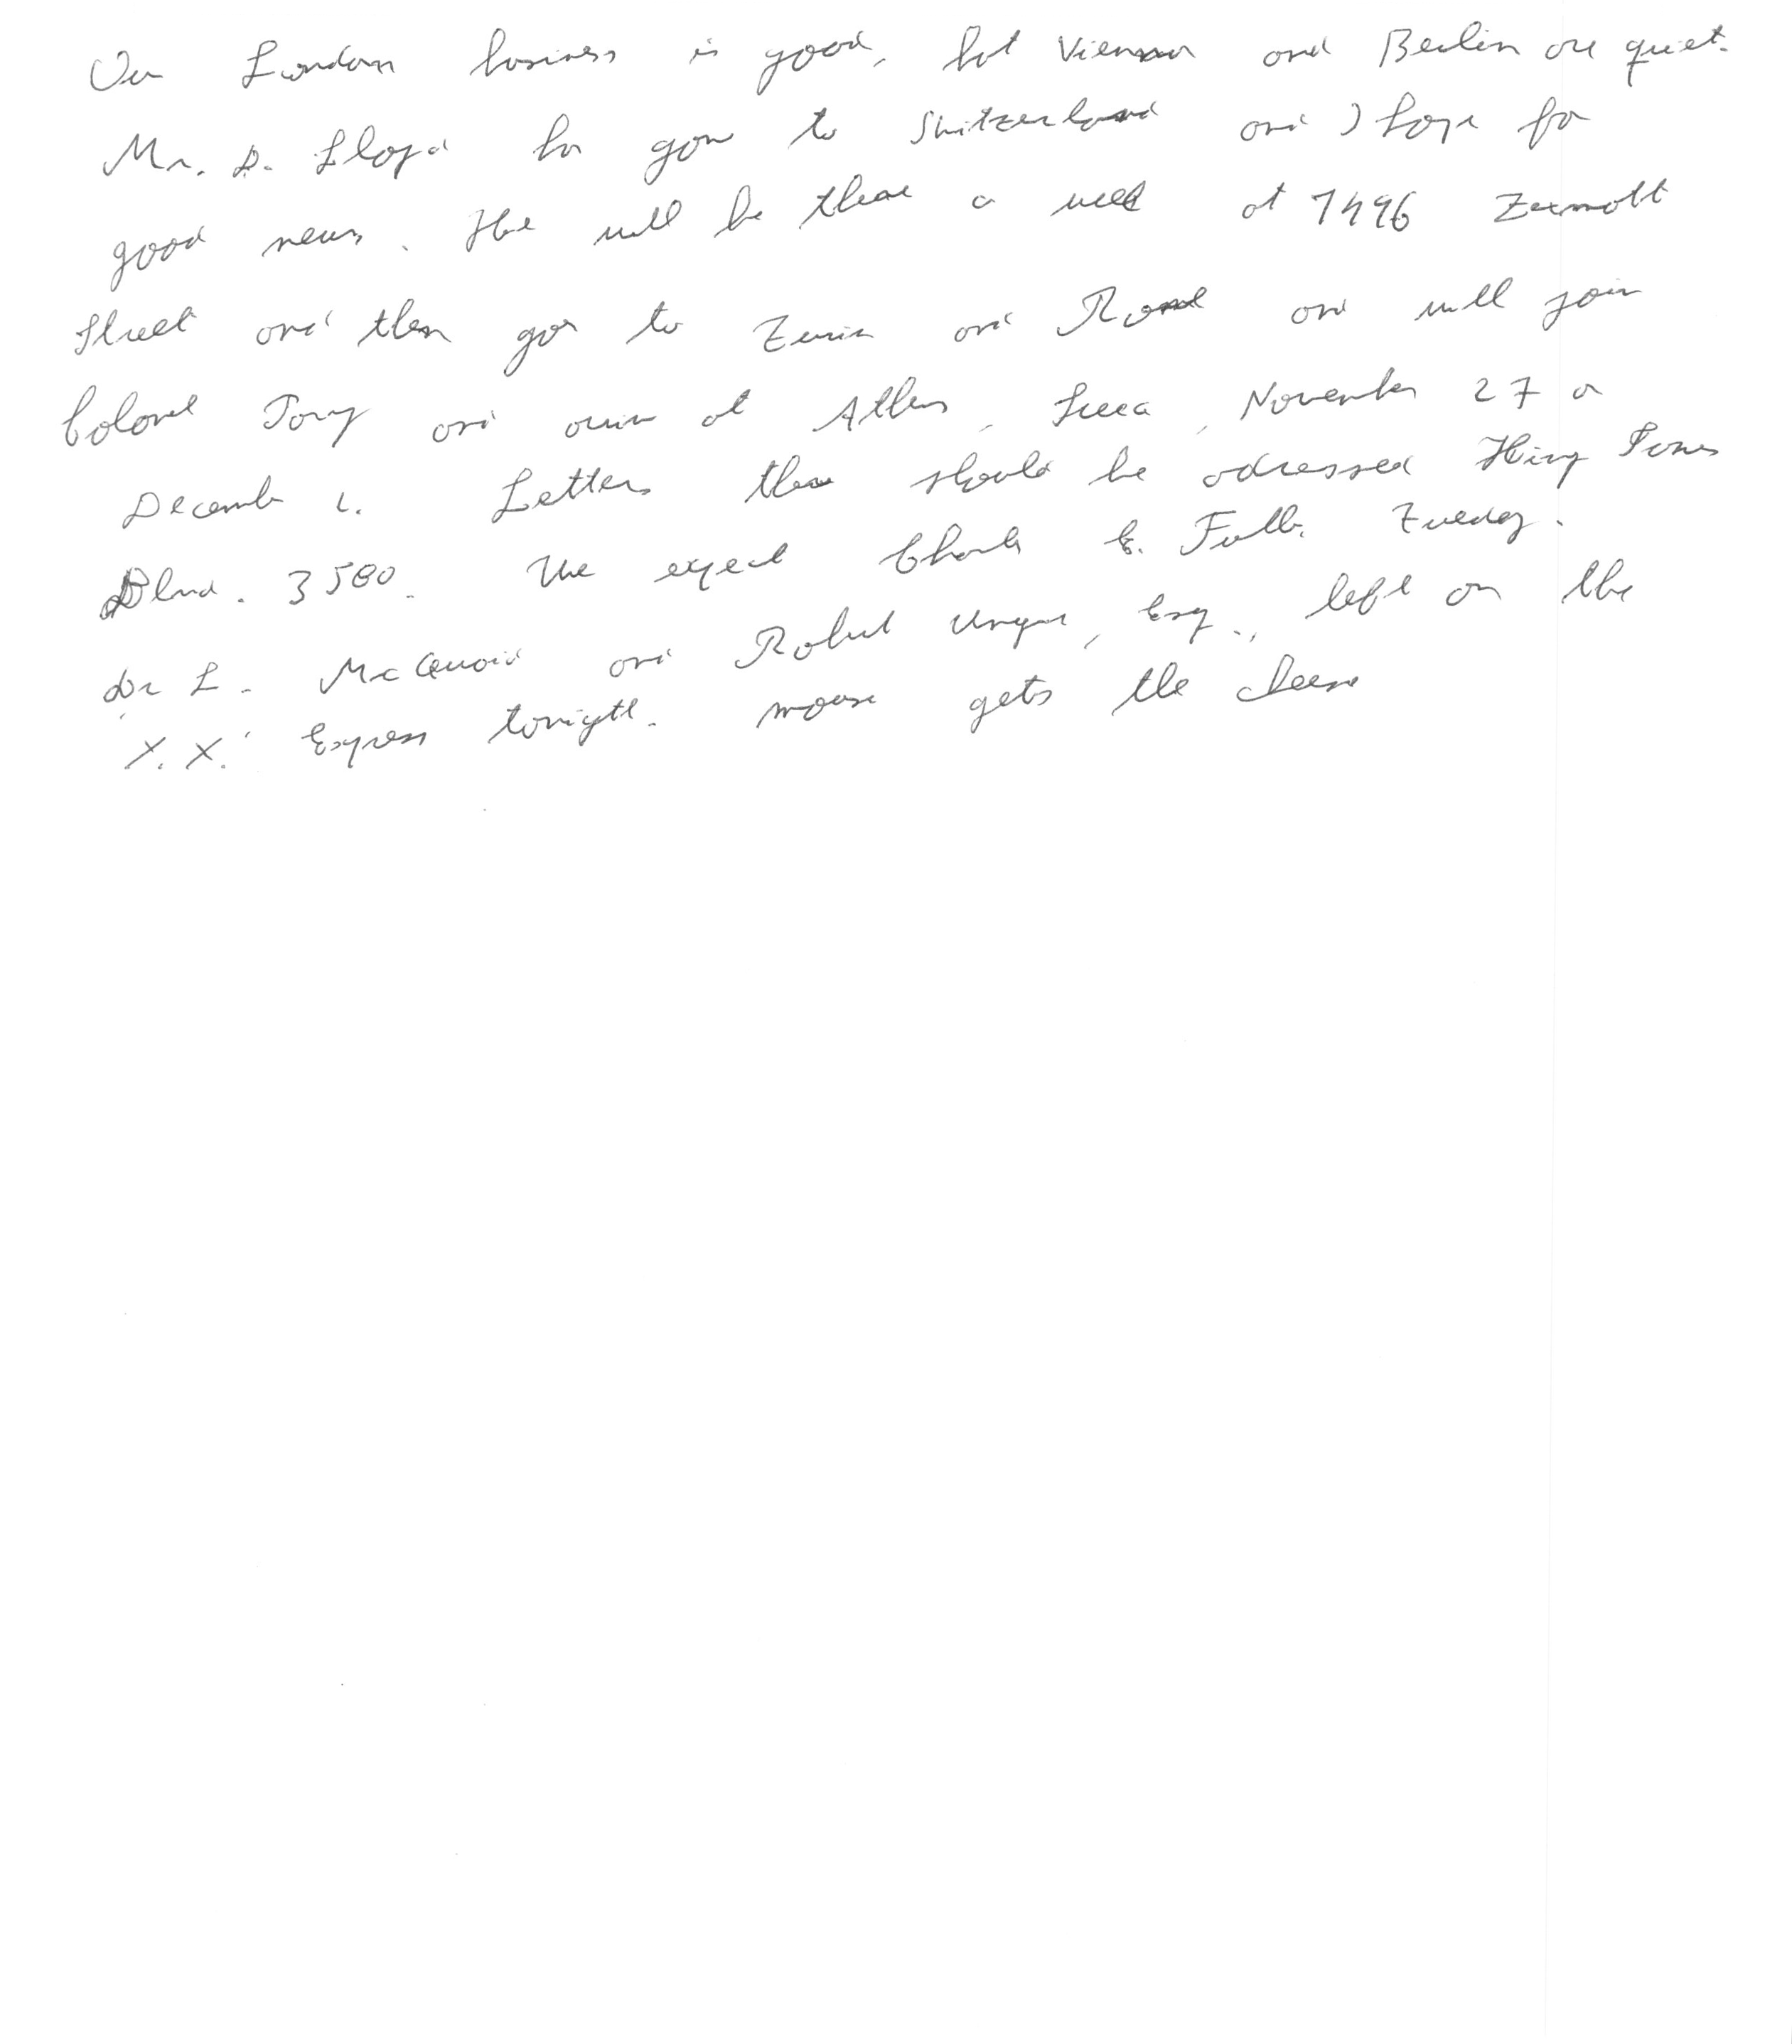 Our London business is good, but Vienna and Berlin are quiet.
Mr. D. Lloyd has gone to Switzerland and I hope for
good news. He will be there a week at 7496 Zermott
Street and then goes to Zurin and Rome and will join
Colonel Tony and arrive at Athens, Greece, November 27 or
December 2. Letters there should be adressed King James
Blvd. 3580. We expect Charles E. Fuller Tuesday.
Dr L. McQuaid and Robert Unger, Esq., left on the
'X.X.' Express tonight. mouse gets the cheese